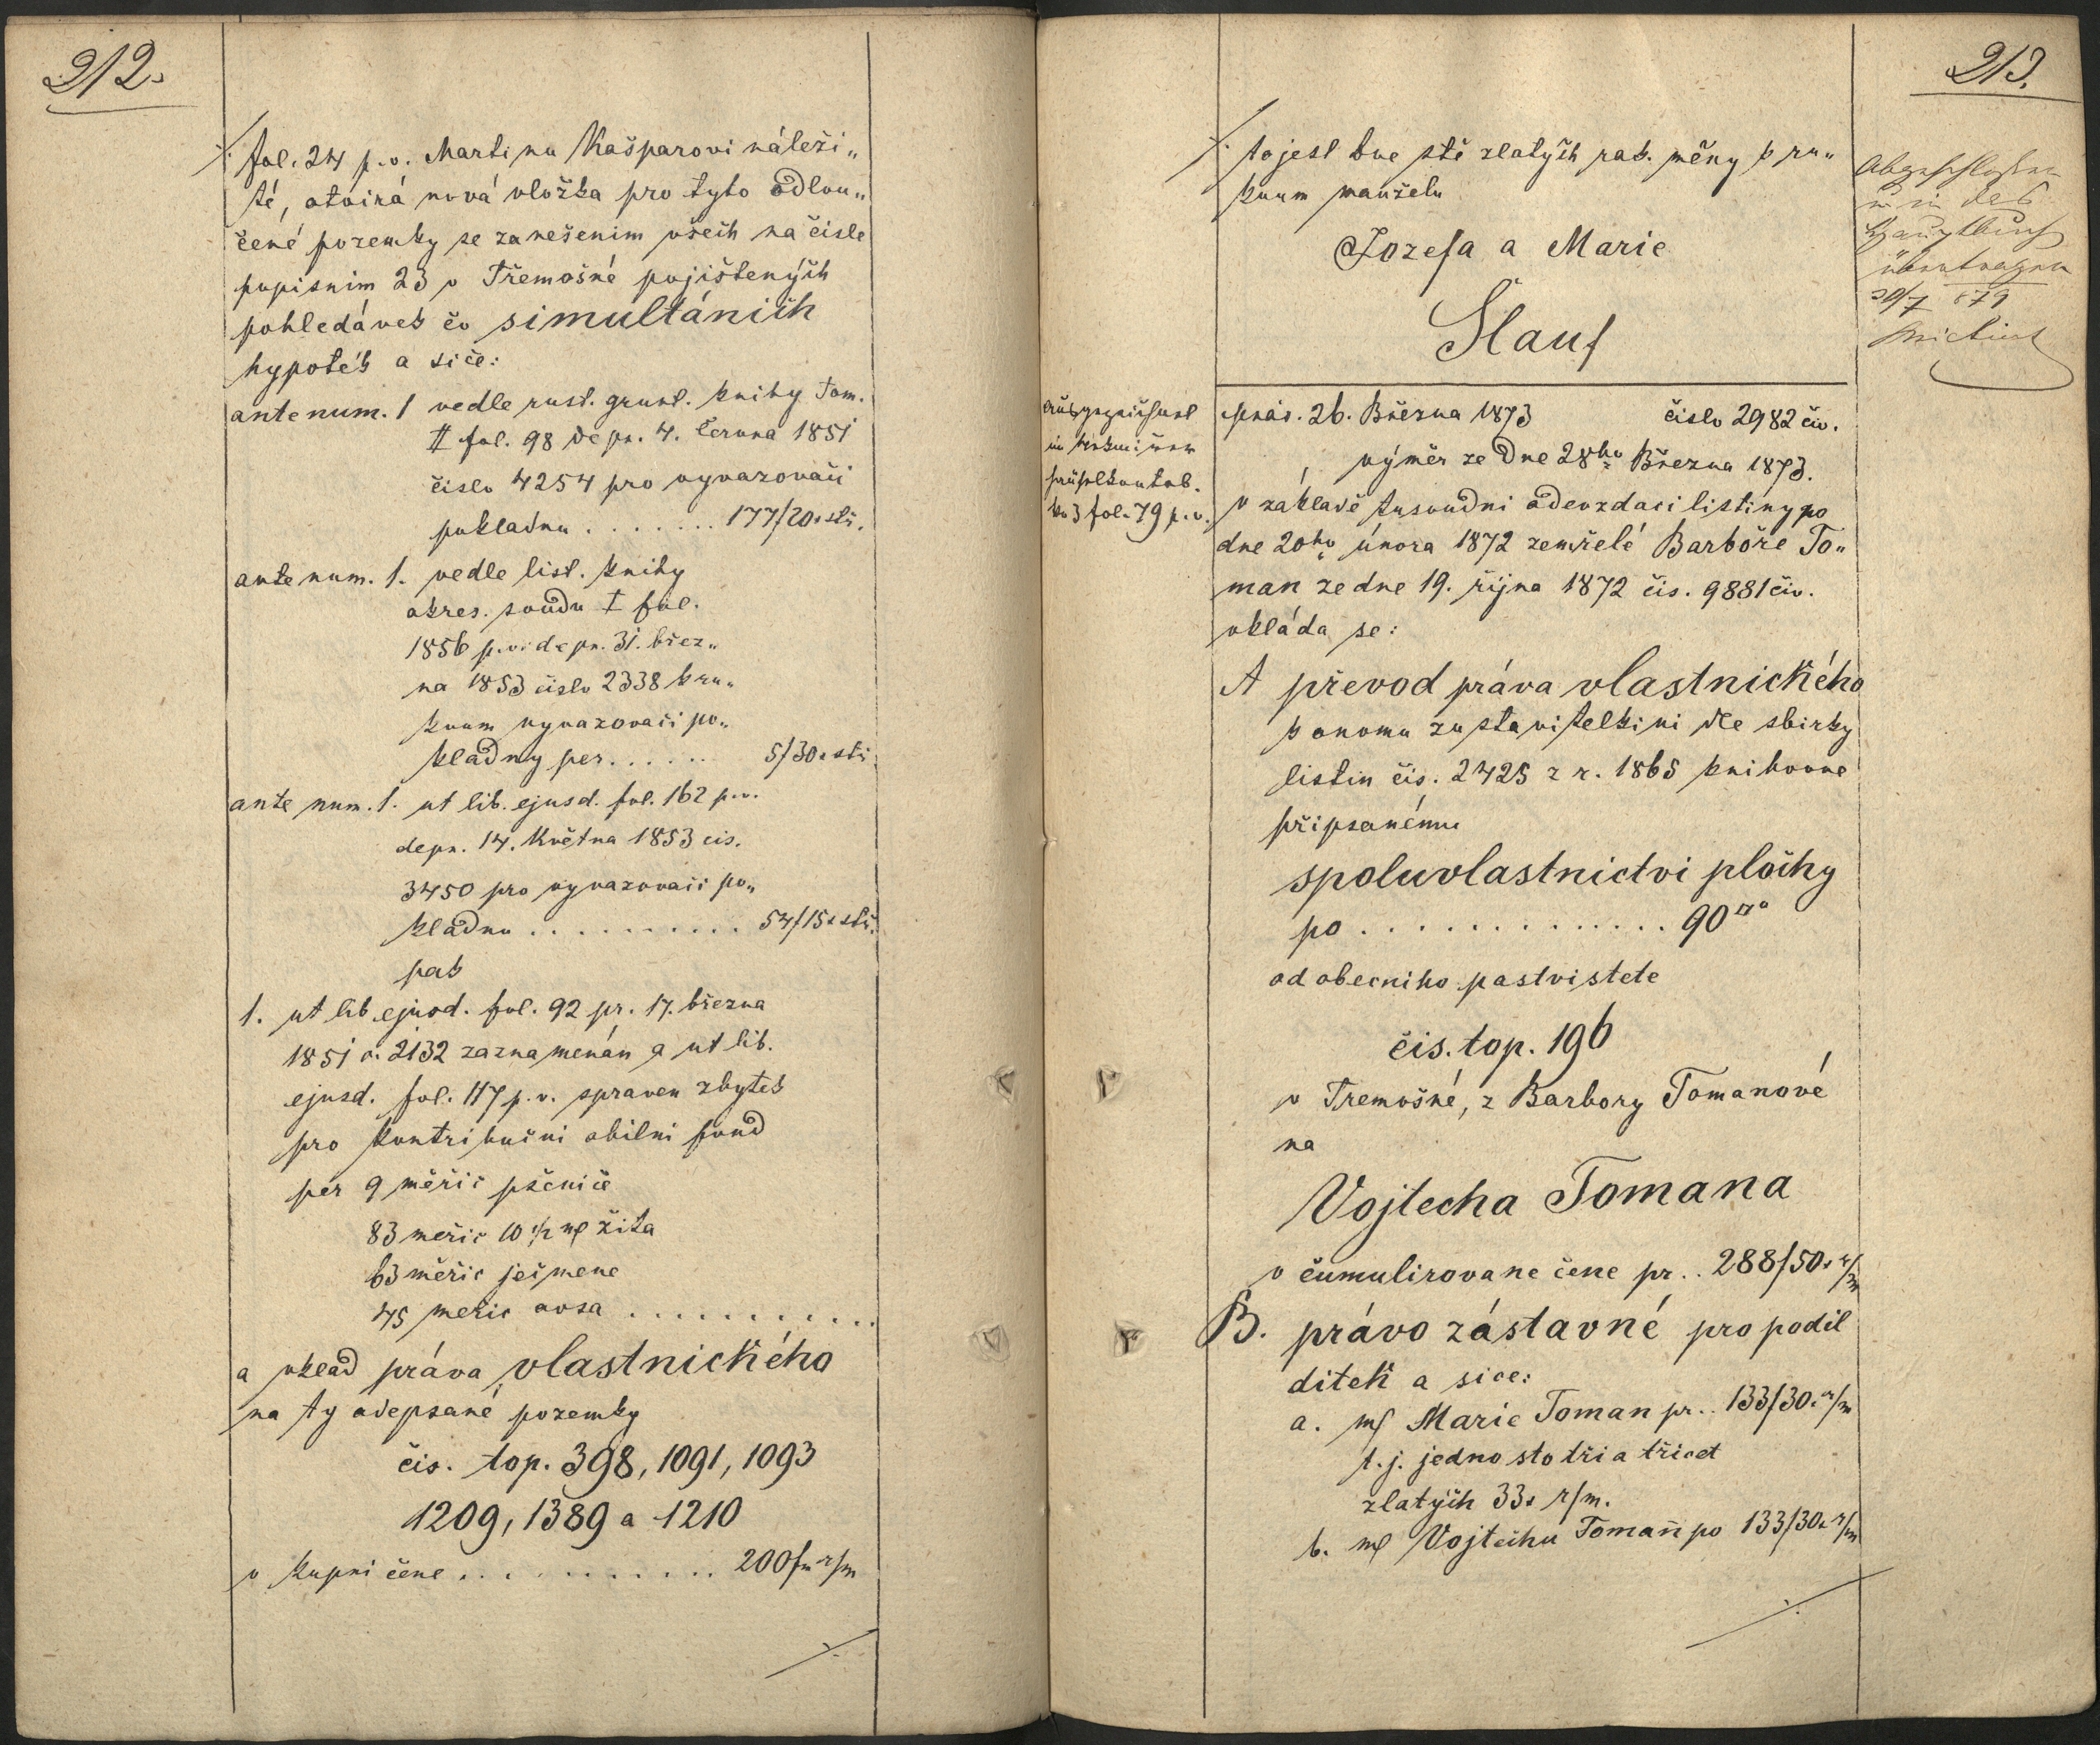 212.
⁒ fol. 24 p. v. Martinu Kašparovi náleži„
té, otvírá nová vložka pro tyto odlou„
čené pozemky se zanešenim všech na čisle
popisnim 23 v Třemošné pojištených
pohledávek co simultánich
hypoték a siče:
ante num. 1 vedle rust. grunt. knihy Tom.
II fol. 98 de pr. 4. Června 1851
čislo 4254 pro vyvazovači
pokladnu . . . . . . . 177/20 x stř.
ante num. 1. vedle list. knihy
okres. soudu I fol.
1856 p. v. de pr. 31. břez„
na 1853 čislo 2338 k ru„
koum vyvazovači po„
kladny per . . . . . . 5/30 x stř.
ante num. 1. ut lib. ejusd. fol. 162 p. v.
de pr. 14. Května 1853 cis.
3450 pro vyvazovači po„
kladnu . . . . . . . . . . 54/15 x stř.
pak
1. ut lib. ejusd. fol. 92 pr. 17. března
1851 č. 2132 zaznamenán a ut lib.
ejusd. fol. 117 p. v. spraven zbytek
pro kontribučni obilni fond
per 9 měřic pšenice
83 meřic 10 1/2 mß žita
63 měřic ječmene
45 meřic ovsa . . . . . . . . . . .
a vklad práva vlastnického
na ty odepsané pozemky
čis. top. 398, 1091, 1093
1209, 1389 a 1210
v kupni čene . . . . . . . . . . . 200 f r/m
⁒
213.
⁒ to jest dve stě zlatých rak. měny k ru„
koum manželu
Jozefa a Marie
Šlauf
Abgeschlossen
u in das
Hauptbuch
übertragen
30/7 879
fol. 79 p. v.
pras. 26. Března 1873 čislo 2982 civ.
výměr ze dne 28ho Března 1873.
v základě tusoudni odevzdaci listiny po
dne 20ho února 1872 zemřelé Barboře To„
man ze dne 19. řijna 1872 čis. 9881 civ.
vkláda se:
A převod práva vlastnického
k onomu zustavitelkini dle sbirky
listin čis. 2425 z r. 1865 knihovne
připsanému
spoluvlastnictvi plochy
po . . . . . . . . . . . . . 90 □°
od obecniho pastvistete
čis. top. 196
v Tremošné, z Barbory Tomanové
na
Vojtecha Tomana
v čumulirovane čene pr. . 288/50 x r/m
B. právo zástavné pro podil
ditek a sice:
a. mß Marie Toman pr. . 133/30 x r/m
t. j. jedno sto tři a třicet
zlatých 33 x r/m.
b. mß Vojtěchu Toman̄ po 133/30 x r/m
⁒